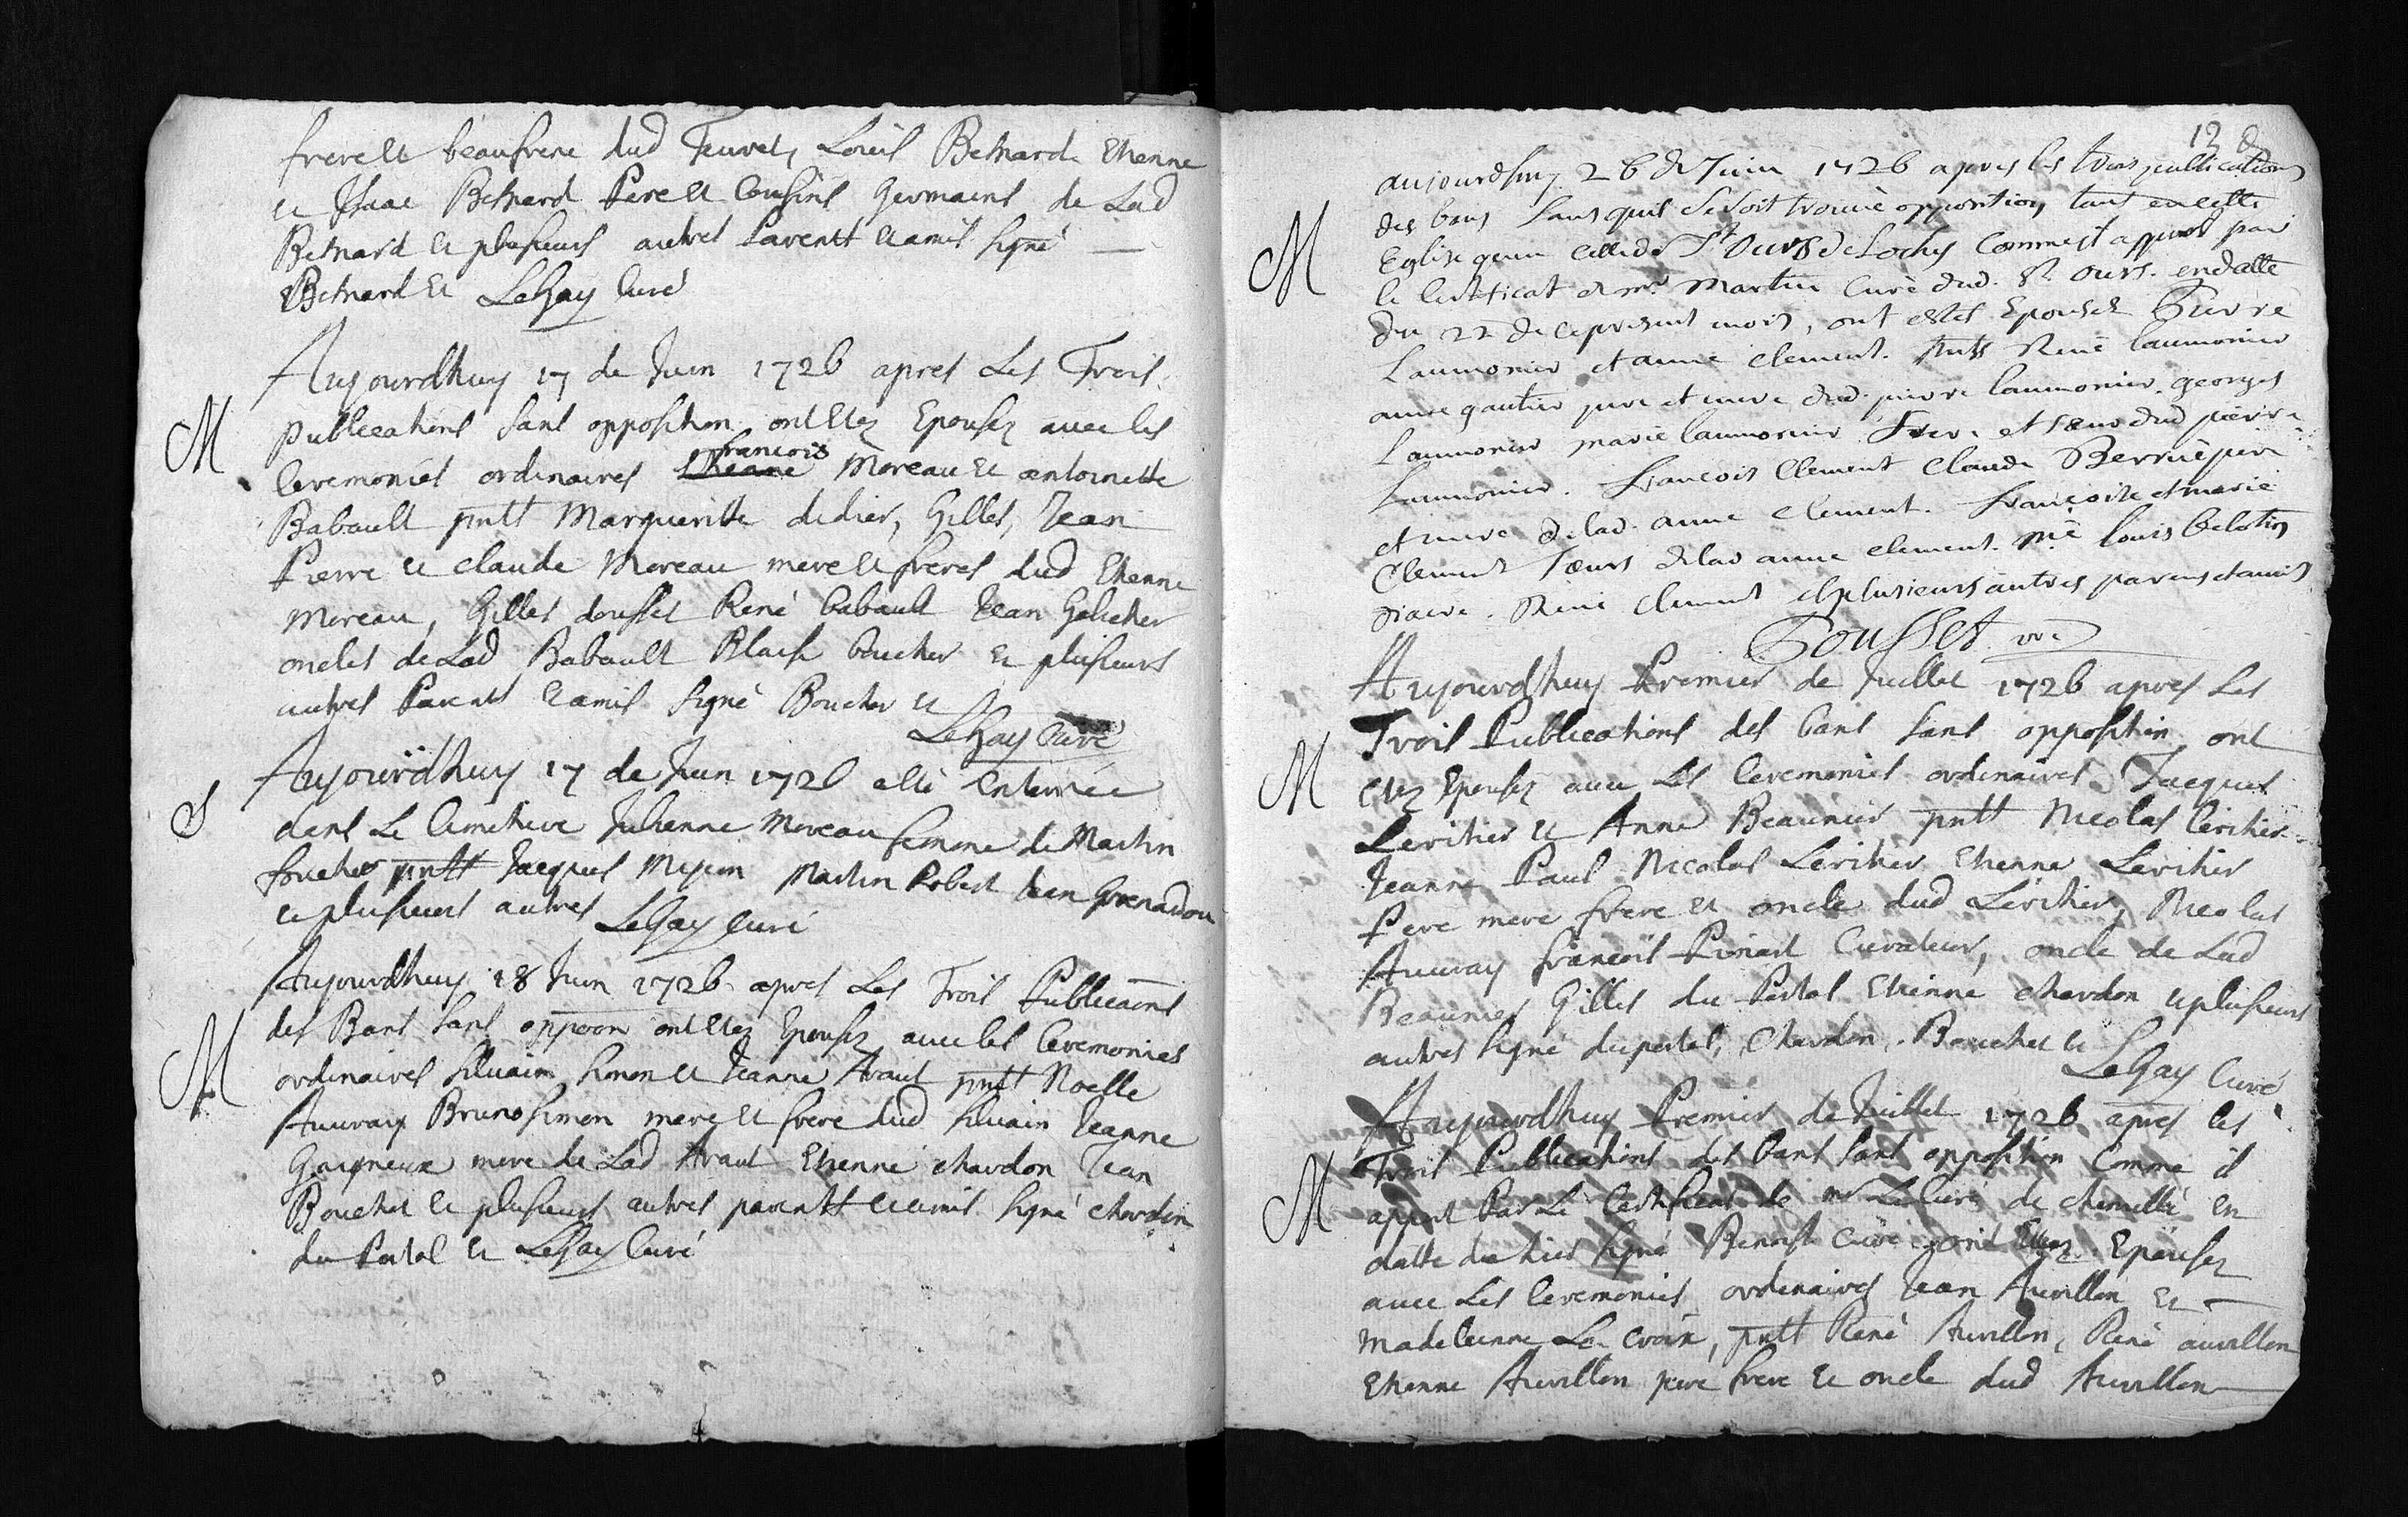 frere et beaufrere dud Feuvet, Loüis Besnard Etienne
et Isaac Besnard Pere et Cousins Germains de Lad
Besnard et plusieurs autres Parentt et amis signé
Besnard et LeGay Curé
M
Aujourdhuy 17 de Juin 1726 apres Les Trois
publications sans opposition ont Etez Epousez avec les
francois
Ceremonies ordinaires Etienne Moreau et antoinette
Babault pntt Margueritte didier, Gilles, Jean
Pierre et claude Moreau mere et freres dud Etienne
Moreau, Gilles dousset René babault Jean Galicher
oncles de Lad Babault Blaise boucher et plusieurs
autres Parents et amis signé Boucher et
LeGay Curé
S
Aujourdhuy 17 de Juin 1726 a eté Enterrée
dans Le Cimetiere Julienne Moreau femme de Martin
foucher pntt Jacques Mijeon Martin Robert Jean Grenadou
et plusieurs autres LeGay Curé
M
Aujourdhuy 18 Juin 1726 apres Les Trois Publicaons
des Bans sans oppoon ont Etez Epousez avec les Ceremonies
ordinaires Silvain Simon et Jeanne Avaut pntt Noelle
Auvray Bruno Simon mere et frere dud Silvain Jeanne
Gaigneux mere de Lad Avaut Etienne chardon Jean
Boucher et plusieurs autres parentt et amis signé chardon
du Portal et LeGay Curé
13
M
aujourdhuy 26 de Juin 1726 apres les trois publications
des bans sans quil se soit trouvé opposition tant en cette
Eglise quen celle de St Ours de Loches comme il appert par
le certificat de mr Martin Curé dud. St. ours. en datte
du 22 de ce present mois, ont estés Epousez Pierre
Laumonier et anne clement. pntts René laumonier
anne gautier pere et mere dud. pierre laumonier. georges
Laumonier marie laumonier frere et soeur dud pierre
Laumonier. Francois Clement Claude Berruë pere
et mere de lad. anne clement. Francoise et marie
Clement soeurs de lad anne clement. Me louis
diacre. René clement et plusieurs autres parens et amis
Dousset vic
M
Aujourdhuy Premier de Juillet 1726 apres Les
Trois Publications des bans sans opposition ont
etez Epousez avec Les Ceremonies ordinaires Jacques
Leritier et Anne Beaunier pntt Nicolas leritier
Jeanne Paul Nicolas Leritier Etienne Leritier
Pere mere frere et oncle dud Leritier, Nicolas
Auvray francois Pinart Curateur, oncle de Lad
Beaunier Gilles du Portal Etienne chardon et plusieurs
autres signé duportal, Chardon, Boucher et
LeGay Curé
M
Aujourdhuy Premier de Juillet 1726 apres les
Trois Publications des bans sans opposition Comme il
appert Par Le Certificat de mr Le Curé de chemillé en
datte de hier signé Benoist Curé ont Etez Epousez
avec Les Ceremonies ordinaires Jean Auvillon et
Madeleinne La croix, pntt René Auvillon, René auvillon
Etienne Auvillon pere frere et oncle dud Auvillon